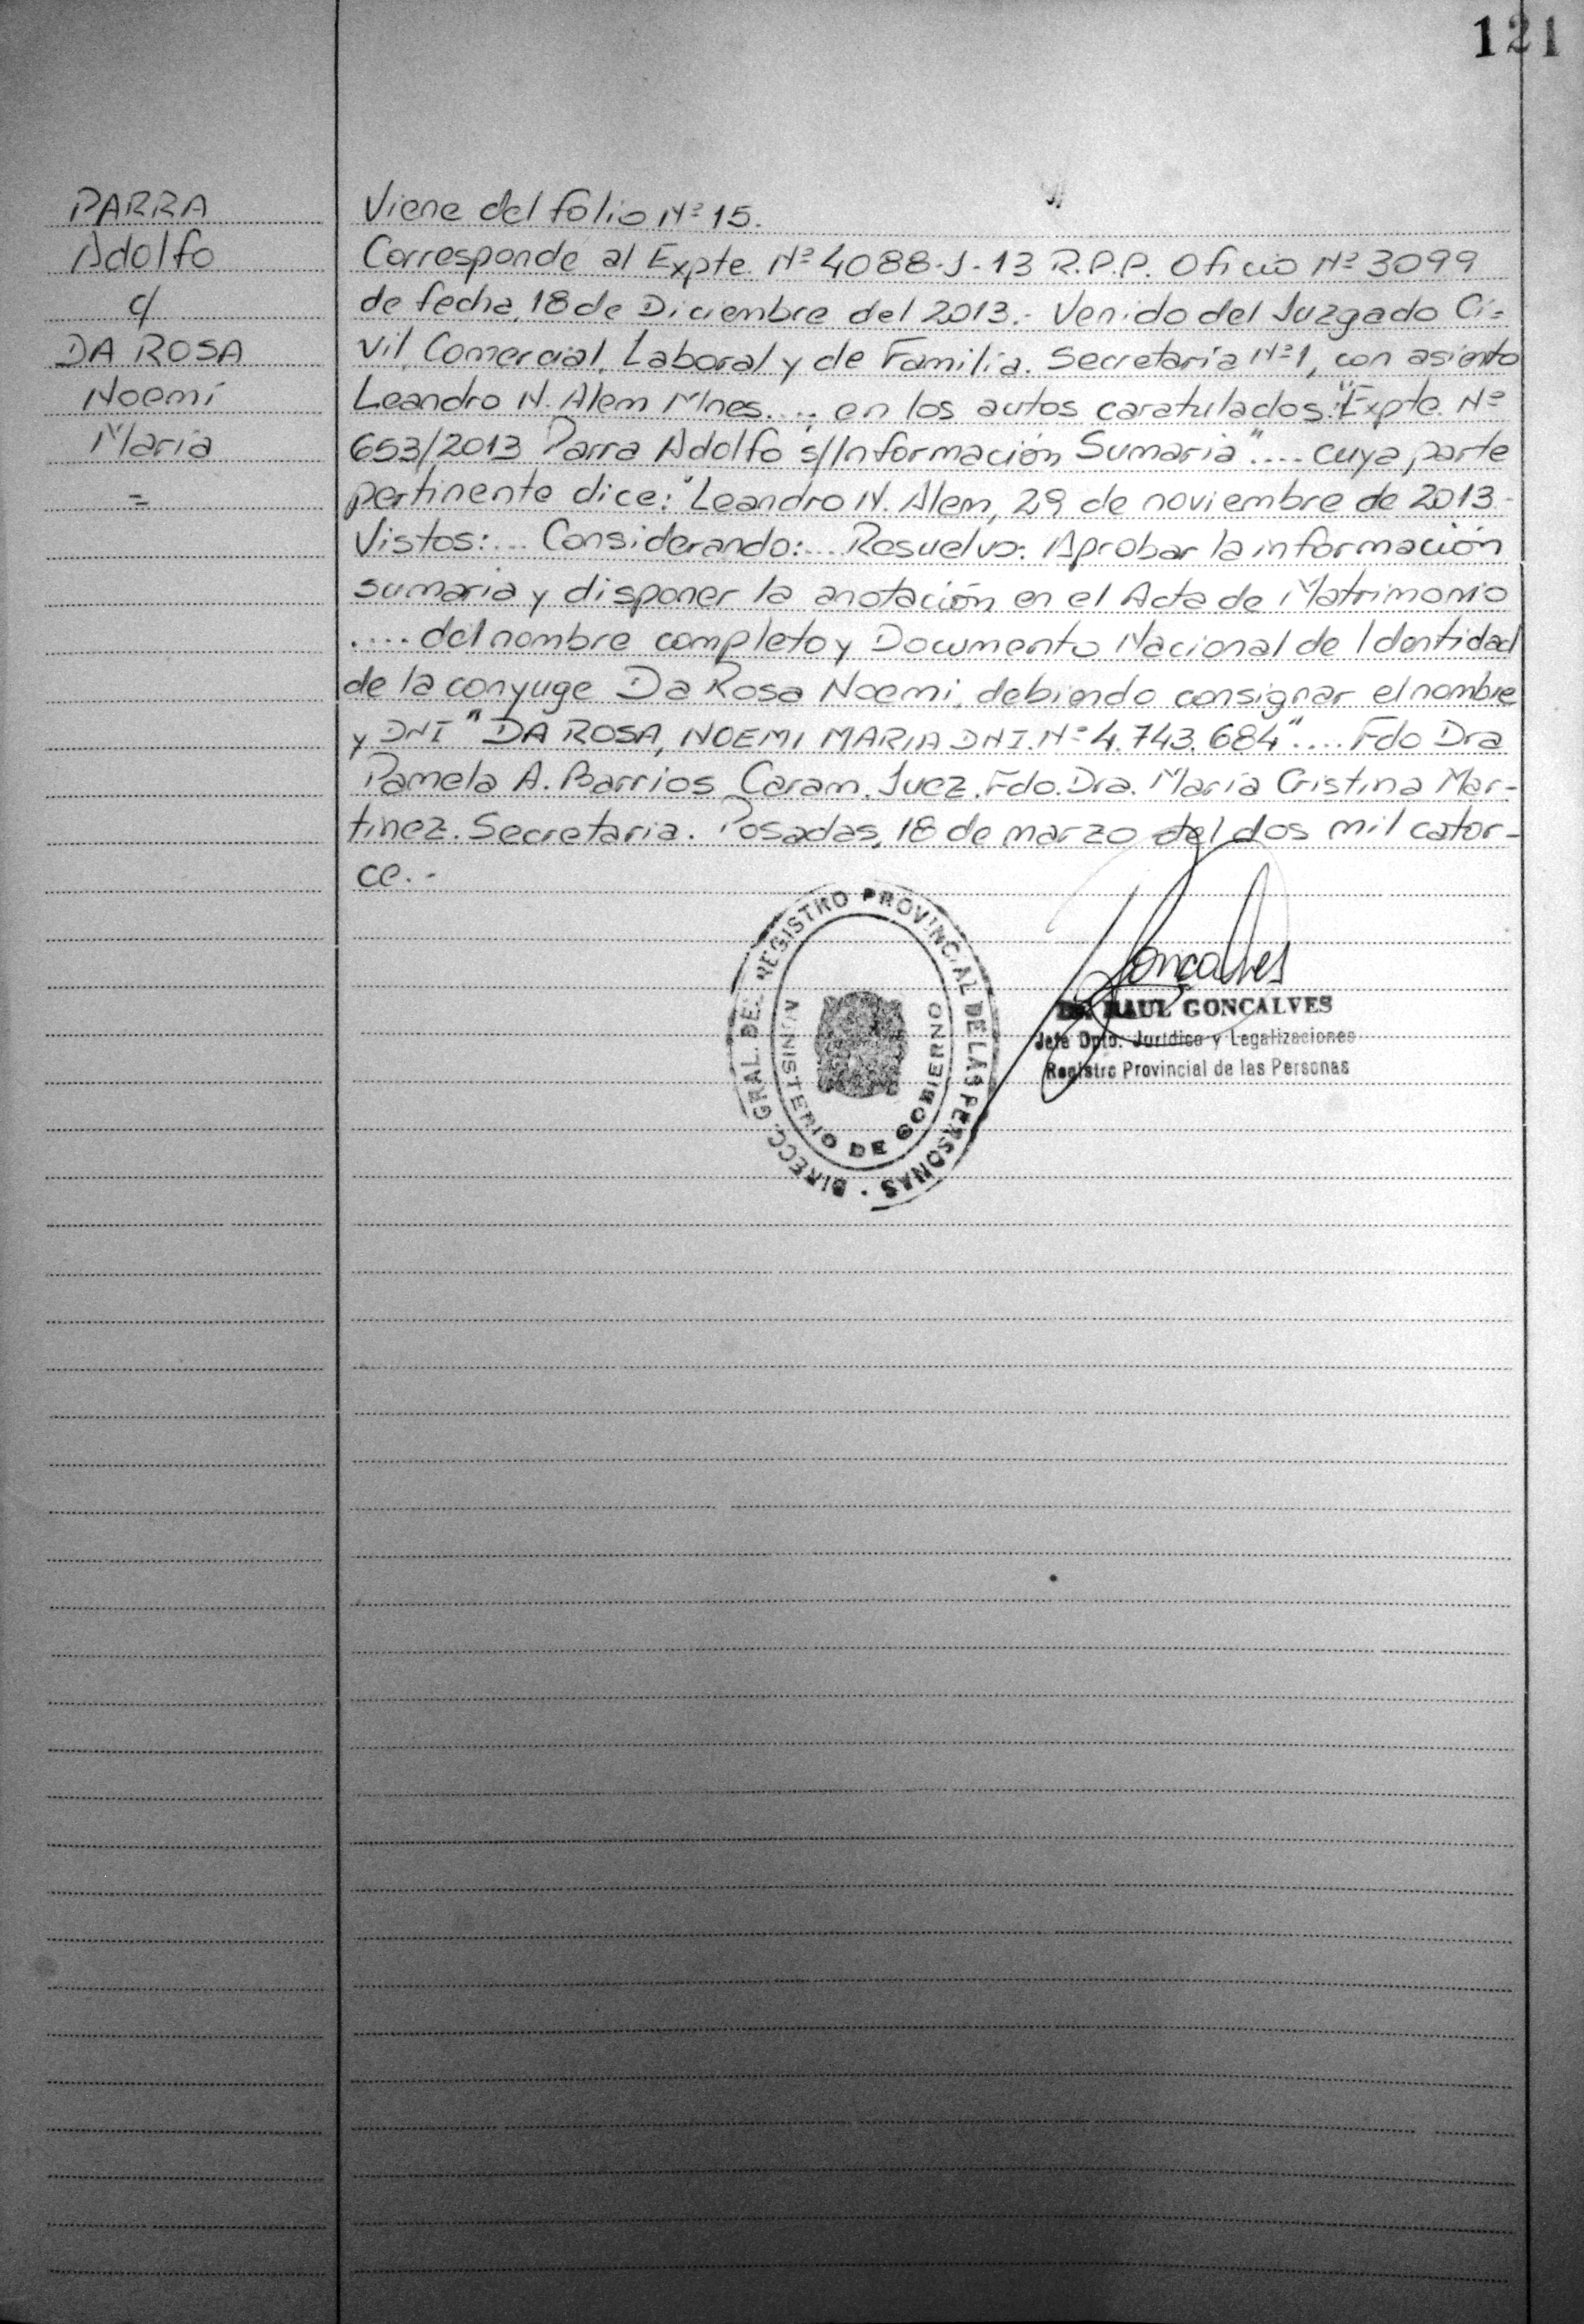 121
PARRA
Adolfo
c/
DA ROSA
Noemí
María
=
Viene del folio Nº 15.
Corresponde al Expte. Nº 4088-J-13 R.P.P. Oficio Nº 3099
de fecha, 18 de Diciembre del 2013.- Venido del Juzgado Ci=
vil, Comercial, Laboral y de Familia. Secretaría Nº 1, con asiento
Leandro N. Alem Mnes.... en los autos caratulados: "Expte. Nº
653/2013 Parra Adolfo s/Información Sumaria".... cuya parte
pertinente dice: "Leandro N. Alem, 29 de noviembre de 2013.
Vistos:... Considerando:... Resuelvo: Aprobar la información
sumaria y disponer la anotación en el Acta de Matrimonio
.... del nombre completo y Documento Nacional de Identidad
de la conyuge Da Rosa Noemi, debiendo consignar el nombre
y DNI "DA ROSA, NOEMI MARIA DNI. Nº 4.743.684".... Fdo Dra
Pamela A. Barrios Caram. Juez. Fdo. Dra. María Cristina Mar-
tinez. Secretaria. Posadas, 18 de marzo del dos mil cator-
ce.-
DIRECC. GRAL. DEL REGISTRO PROVINCIAL DE LAS PERSONAS
MINISTERIO DE GOBIERNO
Goncalves
Dr. RAUL GONCALVES
Jefe Dpto. Jurídico y Legalizaciones
Registro Provincial de las Personas